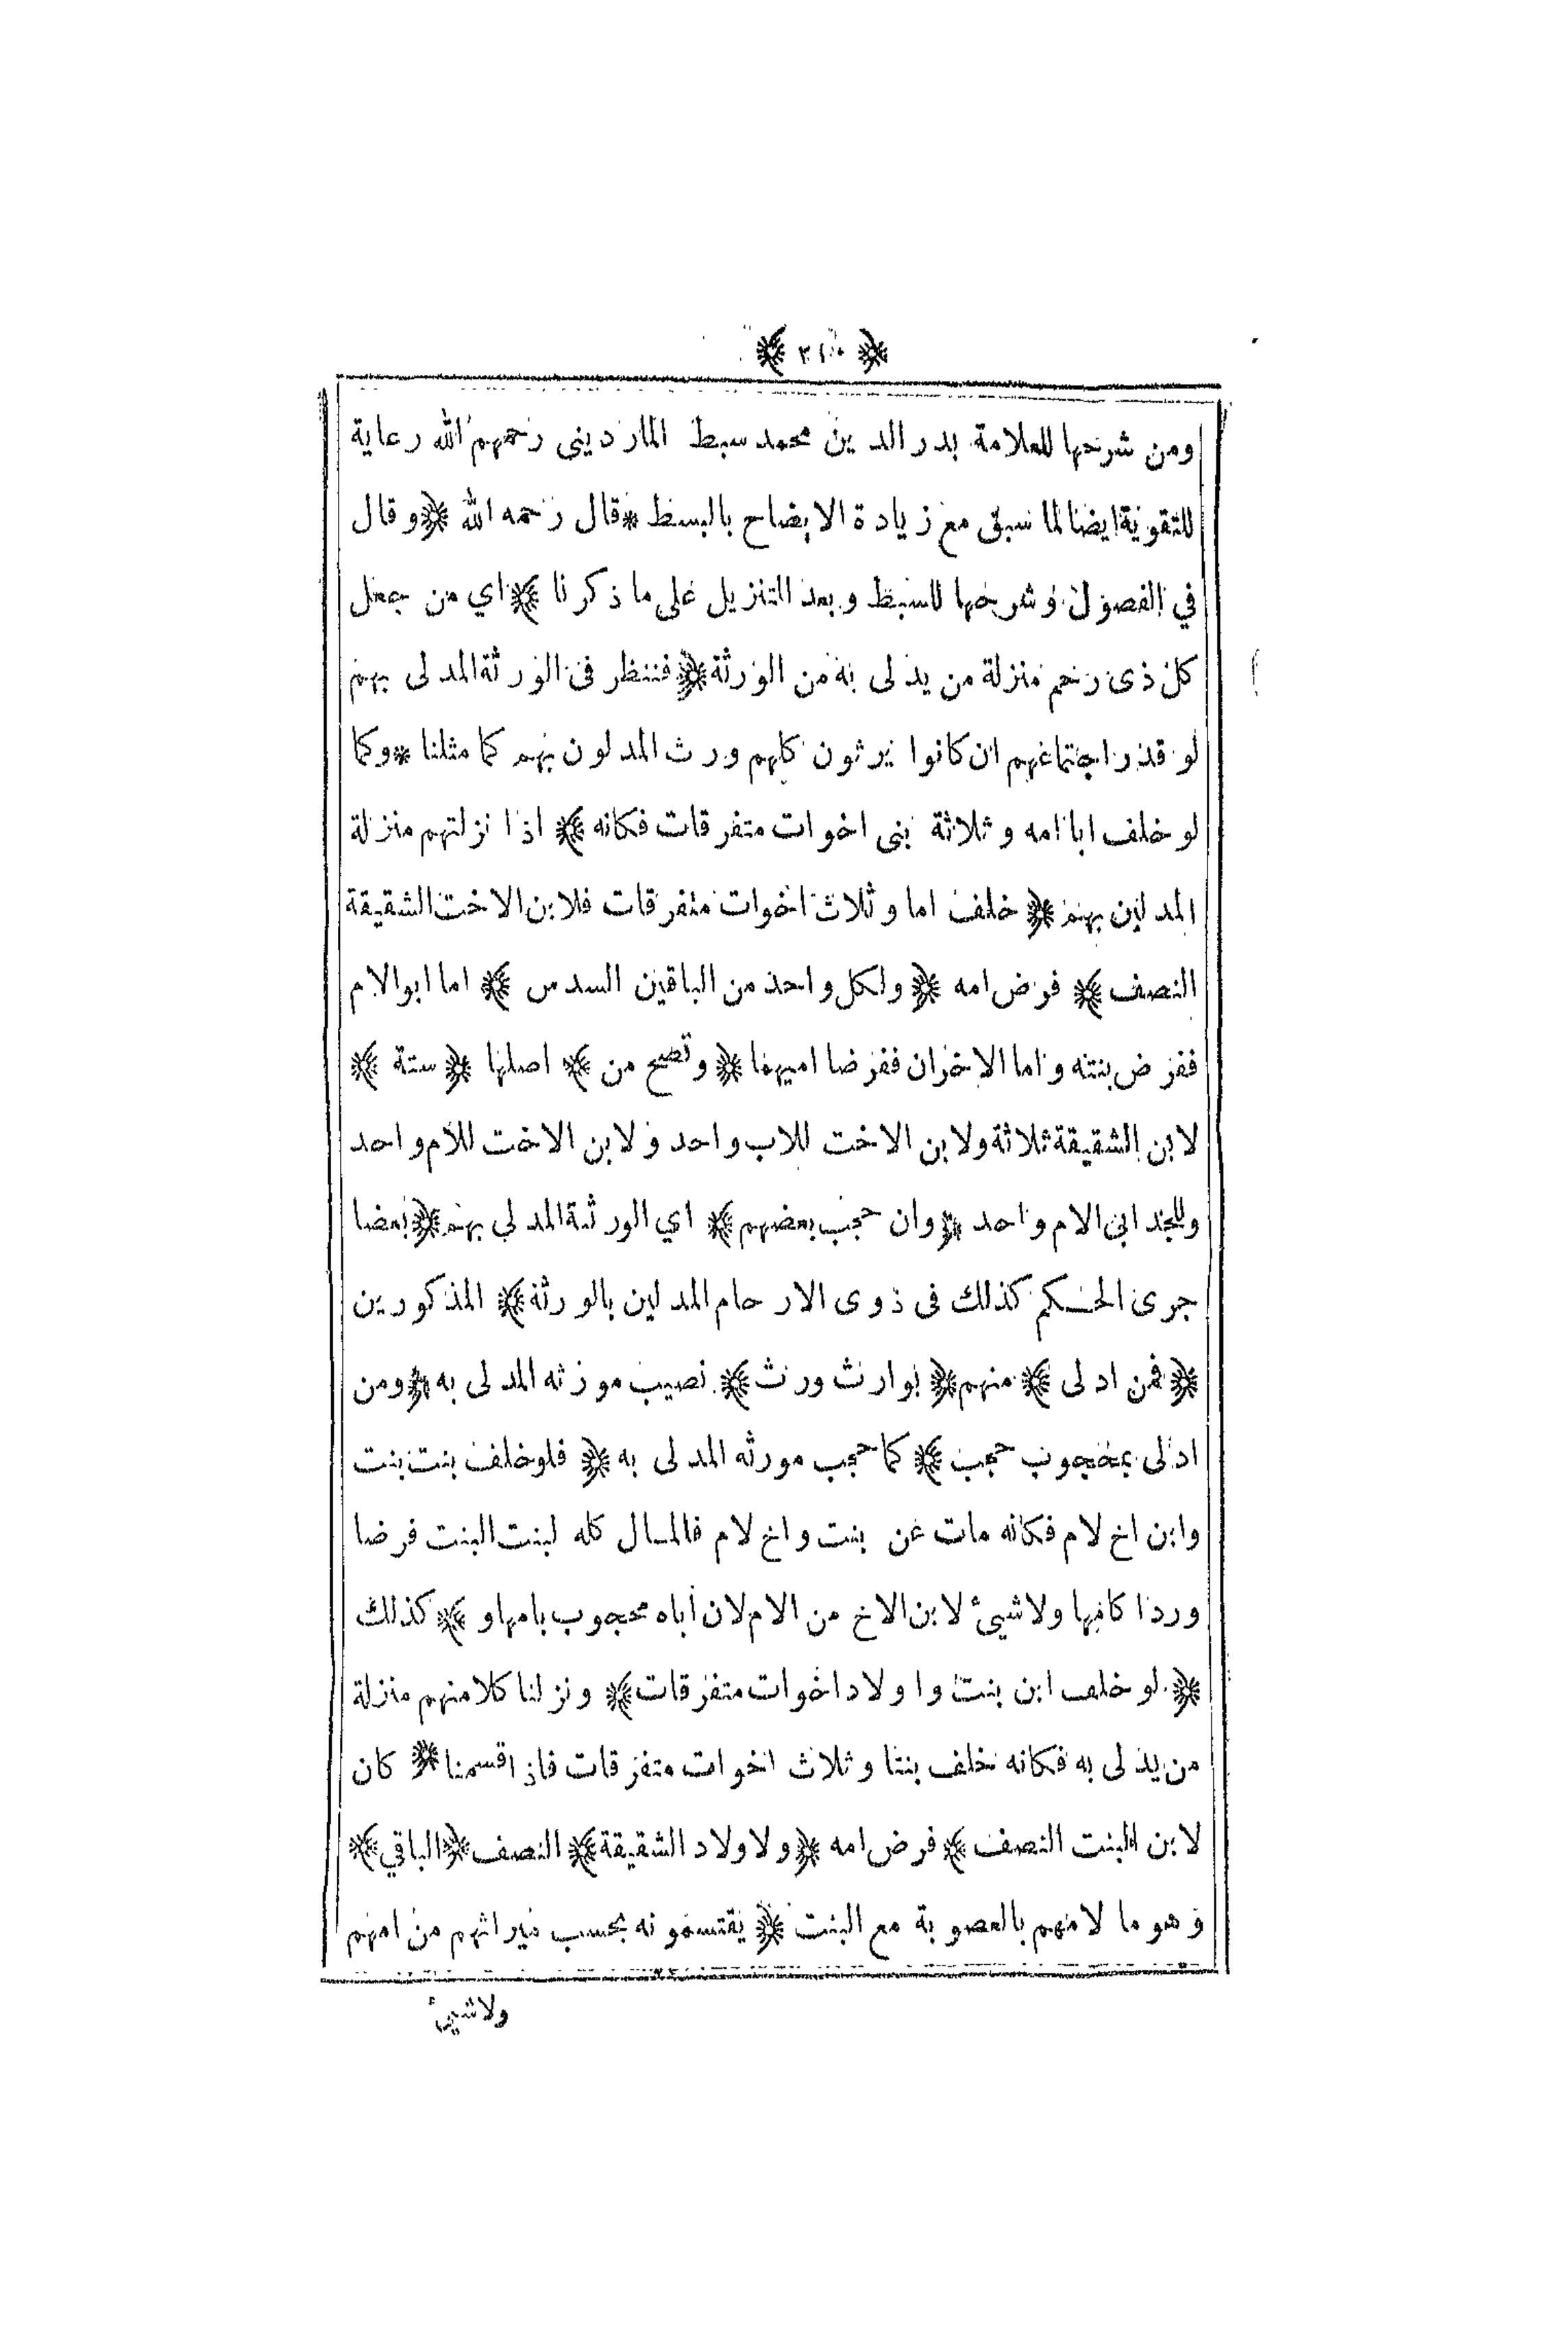 ومن شرحها للعلامة بدر الدين محمد سبط الماردينى رحمهم الله رعاية
للتقوية ايضا لما سبق مع زيادة الايضاح بالبسط * قال رحمه الله ﴿ وقال
في الفصول وشرحها للسبط وبعد التنزيل على ما ذكرنا ﴾ اي من جعل
كل ذى رحم منزلة من يدلى به من الورثة ﴿ فننظر فى الورثة المدلى بهم
لو قدر اجتماعهم ان كانوا يرثون كلهم ورث المدلون بهم كما مثلنا * وكما
لو خلف ابا امه وثلاثة بنى اخوات متفرقات فكانه ﴾ اذا نزلتهم منزلة
المدلين بهم ﴿ خلف اما وثلاث اخوات متفرقات فلابن الاخت الشقيقة
النصف ﴾ فرض امه ﴿ ولكل واحد من الباقين السدس ﴾ اما ابو الام
ففرض بنته واما الاخران ففرضا اميهما ﴿ وتصح من ﴾ اصلها ﴿ ستة ﴾
لابن الشقيقة ثلاثة ولابن الاخت للاب واحد ولابن الاخت للأم واحد
وللجد ابى الام واحد ﴿ وان حجب بعضهم ﴾ اي الورثة المدلي بهم ﴿ بعضا
جرى الحكم كذلك فى ذوى الارحام المدلين بالورثة ﴾ المذكورين
﴿ فمن ادلى ﴾ منهم ﴿ بوارث ورث ﴾ نصيب مورثه المدلى به ﴿ ومن
ادلى بمحجوب حجب ﴾ كما حجب مورثه المدلى به ﴿ فلو خلف بنت بنت
وابن اخ لام فكانه مات عن بنت واخ لام فالمال كله لبنت البنت فرضا
وردا كامها ولا شيئ لابن الاخ من الام لان أباه محجوب بامها و ﴾ كذلك
﴿ لو خلف ابن بنت واولاد اخوات متفرقات ﴾ ونزلنا كلا منهم منزلة
من يدلى به فكانه خلف بنتا وثلاث اخوات متفرقات فاذا قسمنا ﴿ كان
لابن البنت النصف ﴾ فرض امه ﴿ ولاولاد الشقيقة ﴾ النصف ﴿ الباقي ﴾
وهو ما لامهم بالعصوبة مع البنت ﴿ يقتسمونه بحسب ميراثهم من امهم
ولا شيئ